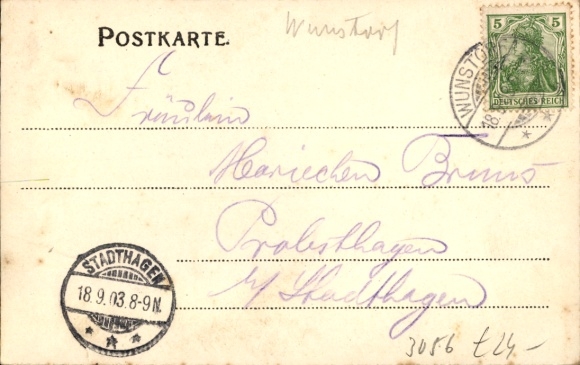 POSTKARTE.
Wunstorf
5 5
DEUTSCHES REICH
WUNSTO
18.
Fräulein
Mariechen Bruns
Probsthagen
b/Stadthagen
STADTHAGEN
18.9.03.8-9N.
3056 £24-